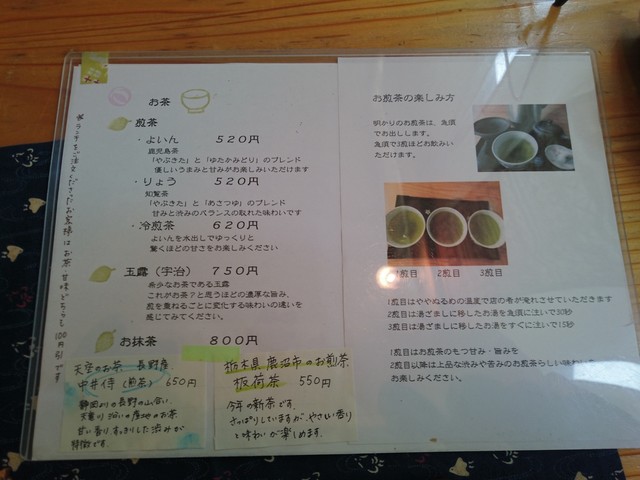 お茶
煎茶
・よいん 520円
鹿児島茶
「やぶきた」と「ゆたかみどり」のブレンド
優しいうまみと甘みがお楽しみいただけます
・りょう 520円
知覧茶
「やぶきた」と「あさつゆ」のブレンド
甘みと渋みのバランスの取れた味わいです
・冷煎茶 620円
よいんを水出しでゆっくりと
驚くほどの甘さをお楽しみください
玉露（宇治） 750円
希少なお茶である玉露
これがお茶？と思うほどの濃厚な旨み、
煎を重ねるごとに変化する味わいの違いを
感じてみてください。
お抹茶 800円
※ランチをご注文くださったお客様はお茶・甘味どちらも100円引です
天空のお茶 長野産
中井侍（煎茶） 650円
静岡よりの長野の山合い、
天竜川沿いの産地のお茶
甘い香り、すっきりした渋みが
特徴です。
栃木県鹿沼市のお煎茶
板荷茶 550円
今年の新茶です。
さっぱりしていますが、やさしい香り
と味わいが楽しめます。
お煎茶の楽しみ方
明かりのお煎茶は、急須
でお出しします。
急須で3煎ほどお飲みい
ただけます。
1煎目 2煎目 3煎目
1煎目はややぬるめの温度で店の者が淹れさせていただきます
2煎目は湯ざましに移したお湯を急須に注いで30秒
3煎目は湯ざましに移したお湯をすぐに注いで15秒
1煎目はお煎茶のもつ甘み・旨みを
2煎目以降は上品な渋みや苦みのお煎茶らしい味わいを
お楽しみください。